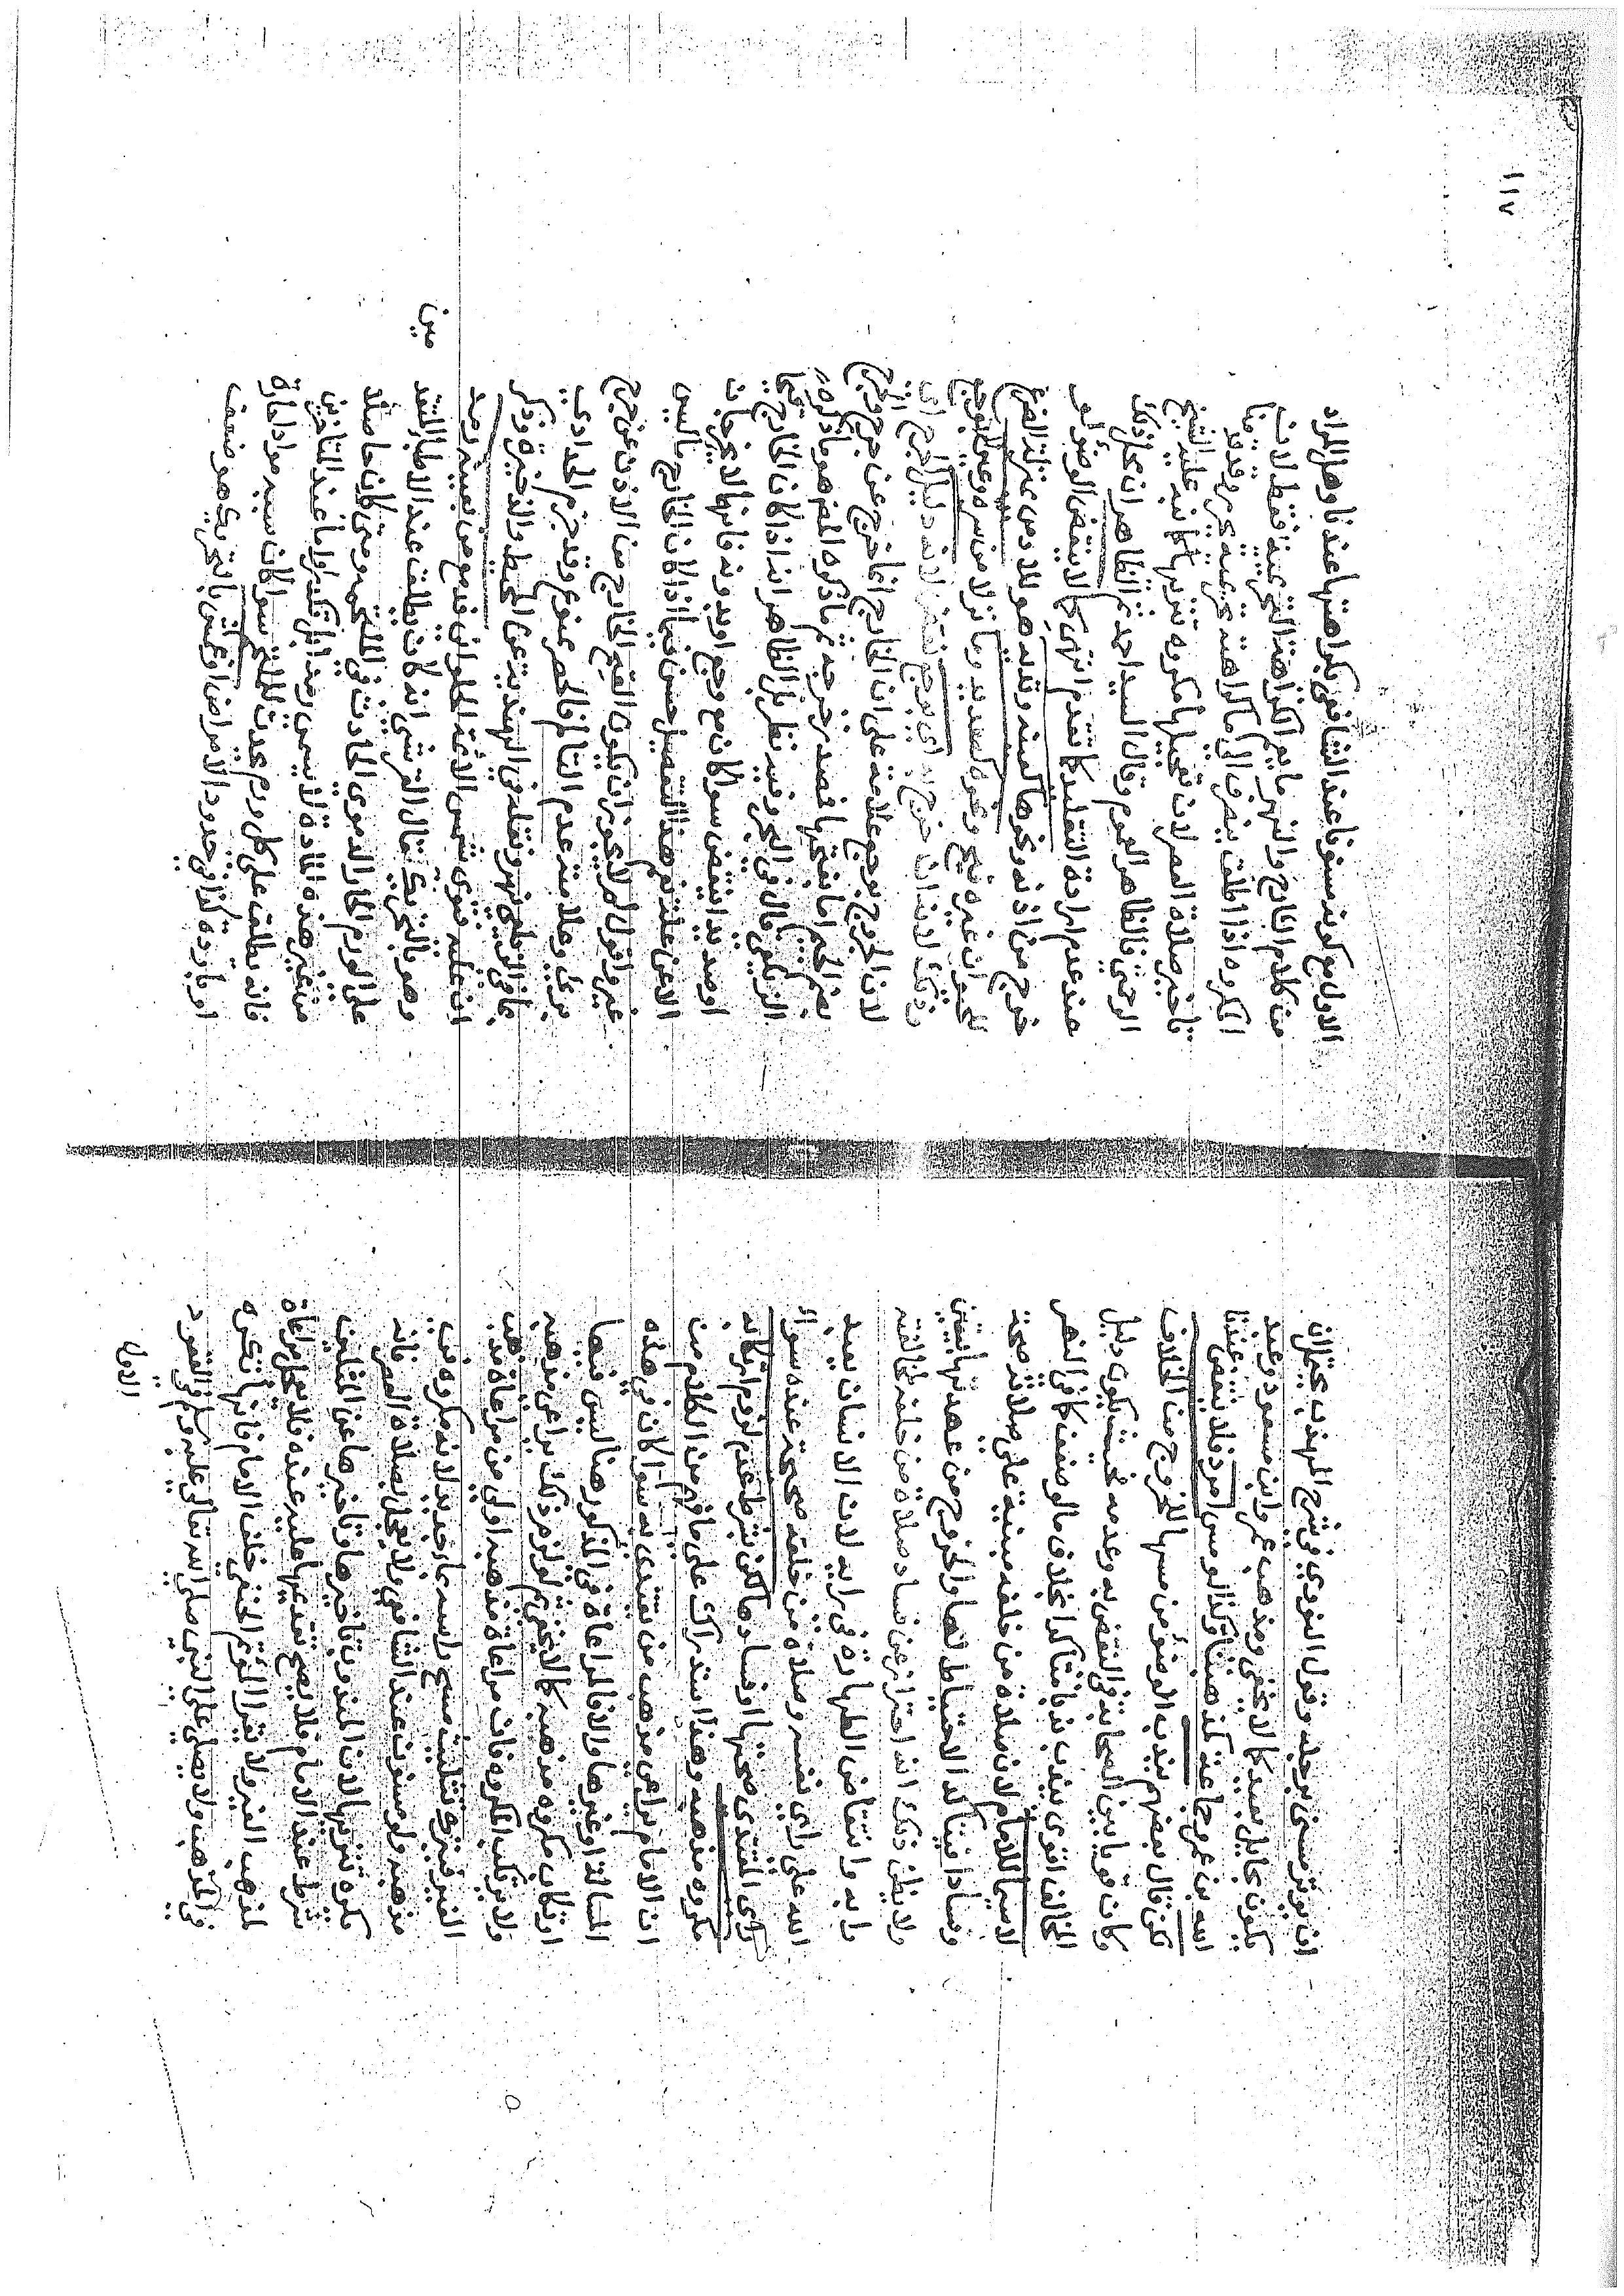 ان يوتر مسني برجله وقول النووي في شرح المهذب يحتمل ان
يكون بحايل بعيد كما لا يخفى ومذهب عمر وابن مسعود وعبد
الله بن عمر وجماعة كمذهبنا وكذا لو مس امرد فلا ينقض عندنا
لكن قال بعضهم يندب الوضوء من مسها للخروج من الخلاف
وكان قويا بين الصحابة في النقض به وعدمه بحيث يكون دليل
المخالف اقوى يندب ندبا متاكدا بخلاف ما لو ضعف كما في النهر
لا سيما للامام لان صلاة من خلفه مبنية على صلاته صحة
وفسادا فيتاكد الاحتياط لها والخروج من عهدتها بيقين
ولا يظن ذلك انه احتراز عن فساد صلاة من خلفه لمخالفته
رايه وانتقاض الطهارة في رايه لان الانسان يعبد
الله على راي نفسه وصلاة من خلفه صحيحة عنده سواء
راى المقتدى صحتها او فسادها لكن بشرط عدم لزوم ارتكاب
مكروه مذهبه وهذا استدراك على ما فهم من الكلام من
ان الامام يراعي مذهب من يقتدى به سوا كان في هذه
المسالة او غيرها والا فالمراعاة في المذكور هنا ليس فيها
ارتكاب مكروه مذهبه كما لا يخفى لو لزم ذلك يراعى مذهبه
ولا يرتكب المكروه فان مراعاة مذهبه اولى من مراعاة مذهب
الغير فيترك تثليث مسح راسه بما جديد لانه مكروه في
مذهبه ولو مسنون عند الشافعي ولا يعجل بصلاة العصر فانه
مكروه تنزيها لان المندوب تاخيرها عن المثلين
شرط عند الامام فلا يصح تقديمها عليه عنده فلا يحل مراعاة
لمذهب الغير ولا يقرا المؤتم الحنفي خلف الامام فانها تكره
في المذهب ولا يصلي على النبي صلى الله تعالى عليه وسلم في القعود
الاول
١١٧
الاول مع كونه مسنونا عند الشافعي بكراهتها عندنا وهل المراد
من كلام الشارح والنهر ما يعم الكراهة التحريمية فقط لان
المكروه اذا اطلق ينصرف الى ما كراهته تحريمية يحرر وقد يقال
تاخير صلاة العصر لان تعجيلها مكروه تنزيها كما نبه عليه الشيخ
الرحمتي فالظاهر العموم وقال السيد احمد ثم الظاهر ان محل ذلك
عند عدم ارادة التقليد كما تقدم انتهى كما لا ينقض الوضوء لو
خرج من اذنه ونحوها كعينه وثديه هو للادمي بمنزلة الضرع
للحيوان غيره قيح ونحوه كصديد وما سرة وعين لا بوجع
وذلك لانه ان خرج به اي بوجع نقض لانه دليل الجرح اي
لان الخروج بوجع علامة على ان الخارج انما خرج عن جرح وجرح
بضم الجيم اما بفتحها فمصدر جرحه ثم ما ذكره المص هو ما ذكره
الزيلعي قال في البحر وفيه نظر بل الظاهر انه اذا كان الخارج قيحا
او صديدا نقض سوا كان مع وجع او بدونه فانهما لا يخرجان
الا عن علة نعم هذا التفصيل حسن فيما اذا كان الخارج ما ليس
غير واقول لم لا يجوز ان يكون القيح الخارج من الاذن عن جرح
بري وعلامته عدم التالم فالحصر ممنوع وقد جزم الحدادي
بما في الزيلعي نهر ونقله في الهندية عن المحيط والذخيرة وذكر
ان عليه فتوى شمس الائمة الحلواني فدمع من بعينه رمد
وهو بالتحريك قال القرشي انه كان يطلق عند الاطباء المتقدمين
على الورم الحار الدموي الحادث في الملتحمة ومتى كان حاصلا
من غير هذه المادة لا يسمى رمدا بل تكدرا واما عند المتاخرين
فانه يطلق على كل ورم يحدث للملتحم سوا كان سببه مواد حارة
او باردة كذا في حدود الامراض او عمش بالتحريك هو ضعف